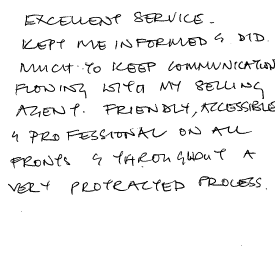 EXCELLENT SERVICE.
KEPT ME INFORMED & DID
MUCH TO KEEP COMMUNICATION
FLOWING WITH MY SELLING
AGENT. FRIENDLY, ACCESSIBLE
& PROFESSIONAL ON ALL
FRONTS & THROUGHOUT A
VERY PROTRACTED PROCESS.